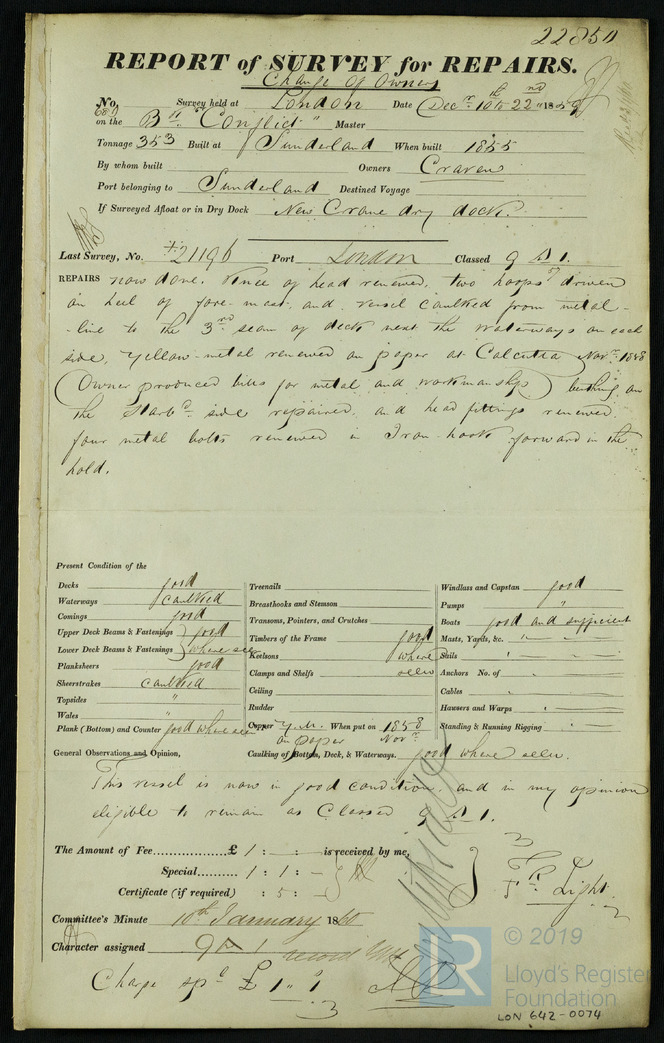 22850
REPORT of SURVEY for REPAIRS.
Change of Owners
No. Survey held at London Date Decr. 10th & 22nd 1859
680
on the Bk "Conflict" Master
Tonnage 353 Built at Sunderland When built 1855
By whom built Owners Craven
Port belonging to Sunderland Destined Voyage
If Surveyed Afloat or in Dry Dock New Crane dry dock.
Last Survey, No. 21196 Port London Classed 9 A 1.
REPAIRS now done. of head renewed, two hoops driven
on heel of fore-mast, and vessel caulked from metal-
-line to the 3rd seam of deck next the Waterways on each
side, Yellow-metal renewed on paper at Calcutta Novr. 1858
(Owner produced bills for metal and workmanship) on
the Starbd. side repaired, and head fittings renewed.
four metal bolts renewed in Iron-hook forward in the
hold.
Present Condition of the
Decks good
Waterways caulked
Comings good
Upper Deck Beams & Fastenings } good
Lower Deck Beams & Fastenings } where seen
Planksheers good
Sheerstrakes caulked
Topsides "
Wales "
Plank (Bottom) and Counter good where seen
Treenails
Breasthooks and Stemson
Transoms, Pointers, and Crutches
Timbers of the Frame good
Keelsons where
Clamps and Shelfs seen
Ceiling
Rudder
Copper Y.M. When put on 1858
on paper Novr.
Caulking of Bottom, Deck, & Waterways. good where seen.
Windlass and Capstan good
Pumps "
Boats good and sufficient
Masts, Yards, &c. " "
Sails " "
Anchors No. of " "
Cables " "
Hawsers and Warps " "
Standing & Running Rigging " "
General Observations and Opinion,
This vessel is now in good condition, and in my opinion
eligible to remain as Classed 9 A 1.
The Amount of Fee............... £ 1 : - : - is received by me,
Special........... 1 : 1 : -
Certificate (if required) : 5 : -
Light
Committee's Minute 10th January 1860
Character assigned 9 A 1
Charge spl. £ 1 " 1
© 2019
LR
Lloyd's Register
Foundation
LON 642-0074